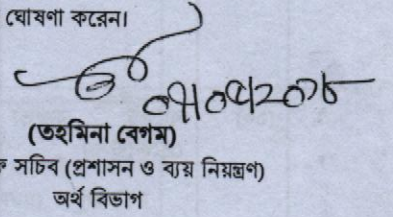 ঘোষণা করেন।
(তহমিনা বেগম)
সচিব (প্রশাসন ও ব্যয় নিয়ন্ত্রণ)
অর্থ বিভাগ